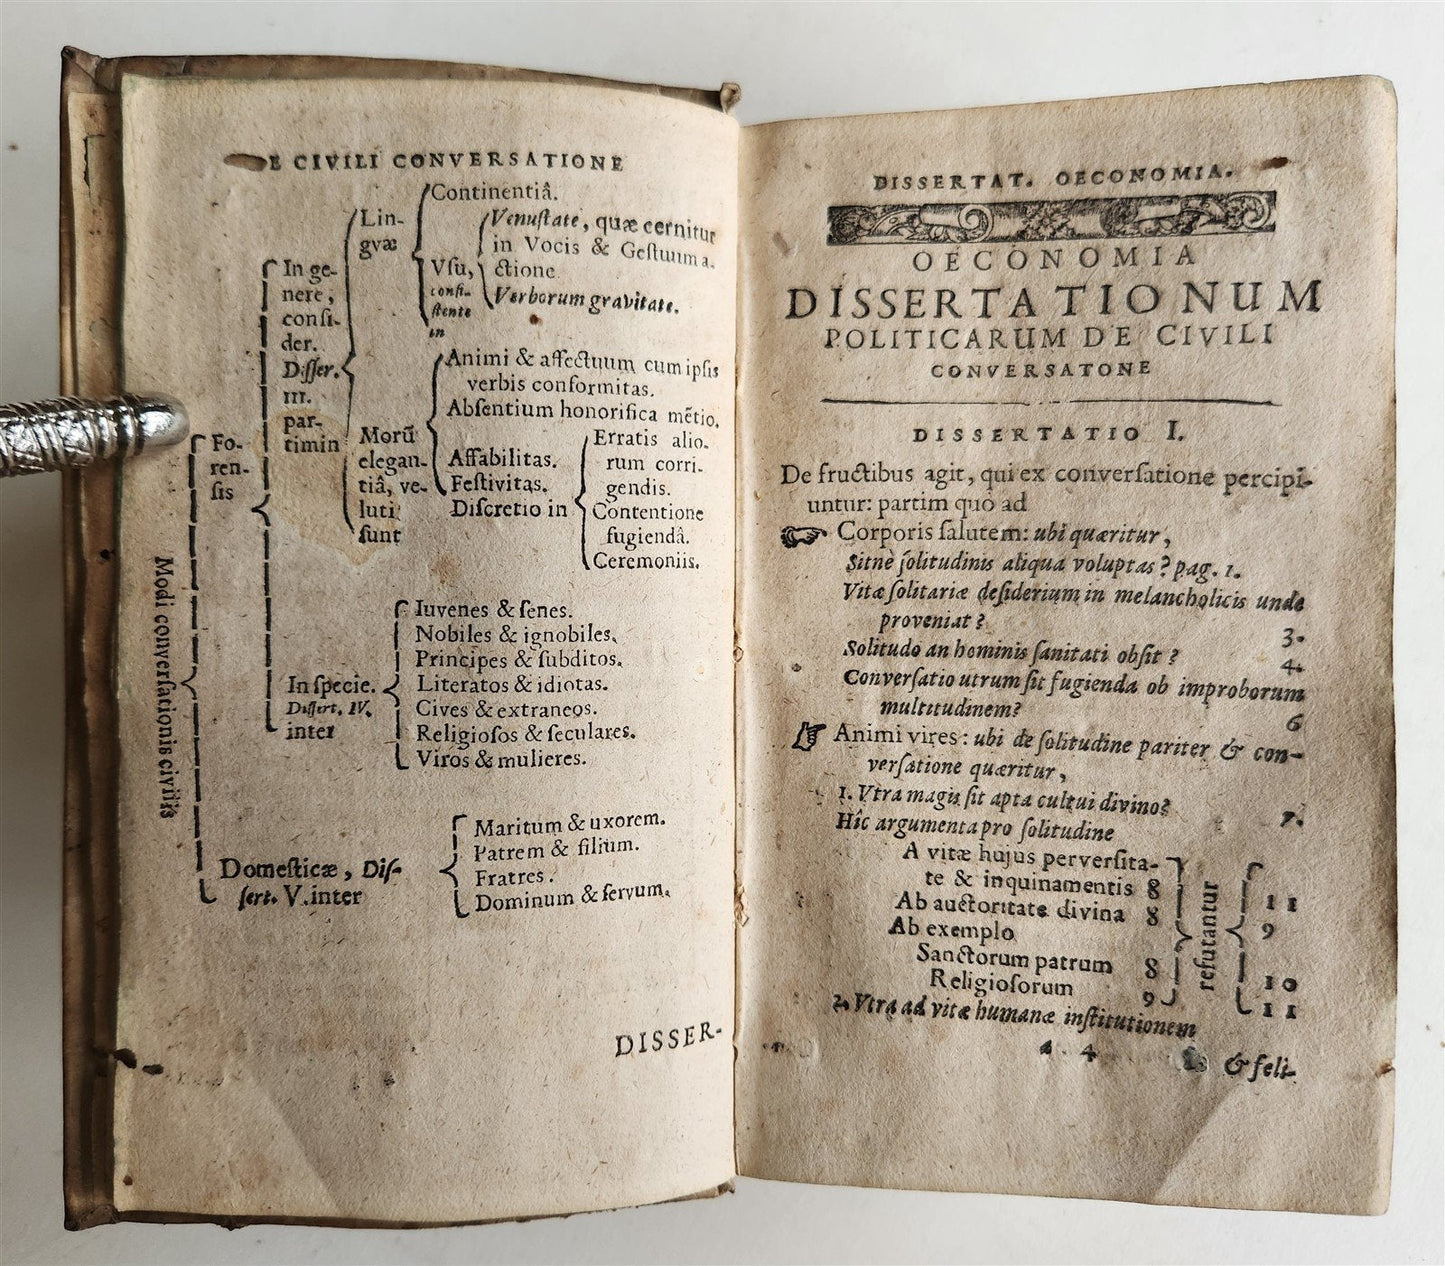 E CIVILI CONVERSATIONE
Continentiâ.
Lin-
gvæ
Venuſtate, quæ cernitur
in Vocis & Geſtuum a.
ctione
Vſu,
conſi-
ſtente
in
Verborum gravitate.
In ge-
nere,
conſi-
der.
Diſſer.
III.
par-
timin
Animi & affectuum cum ipſis
verbis conformitas.
Abſentium honorifica mẽtio.
Morū
elegan-
tiâ, ve-
luti
ſunt
Affabilitas.
Feſtivitas.
Diſcretio in
Erratis alio.
rum corri-
gendis.
Contentione
fugiendâ.
Ceremoniis.
Fo-
ren-
ſis
Modi converſationis civilis
In ſpecie.
Diſſert. IV.
inter
Iuvenes & ſenes.
Nobiles & ignobiles.
Principes & ſubditos.
Literatos & idiotas.
Cives & extraneos.
Religioſos & ſeculares.
Viros & mulieres.
Domeſticæ, Diſ-
ſert. V. inter
Maritum & uxorem.
Patrem & filium.
Fratres.
Dominum & ſervum.
DISSER-
DISSERTAT. OECONOMIA.
OECONOMIA
DISSERTATIONUM
POLITICARUM DE CIVILI
CONVERSATONE
DISSERTATIO I.
De fructibus agit, qui ex converſatione percipi-
untur: partim quò ad
Corporis ſalutem: ubi quæritur,
Sitnè ſolitudinis aliqua voluptas? pag. 1.
Vitæ ſolitariæ deſiderium in melancholicis unde
proveniat? 3.
Solitudo an hominis ſanitati obſit? 4.
Converſatio utrum ſit fugienda ob improborum
multitudinem? 6
Animi vires: ubi de ſolitudine pariter & con-
verſatione quæritur,
1. Vtra magis ſit apta cultui divino? 7.
Hîc argumenta pro ſolitudine
A vitæ hujus perverſita-
te & inquinamentis 8
Ab auctoritate divina 8
Ab exemplo
Sanctorum patrum 8
Religioſorum 9
refutantur
11
9
10
11
2. Vtra ad vitæ humanæ inſtitutionem
4
& feli-